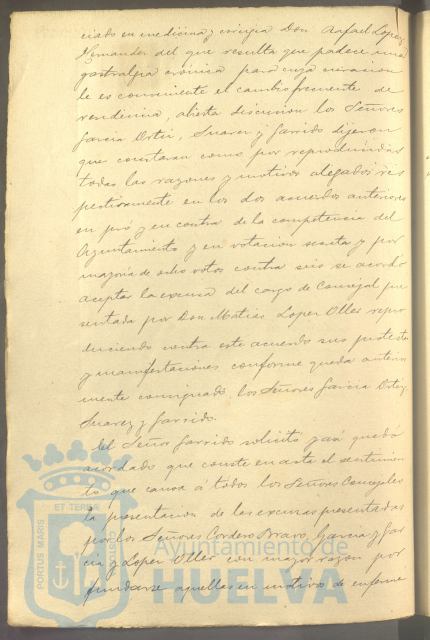 ciado en medicina y cirugia Don Rafael Lopez
Hernandez del que resulta que padece una
gastralgia crónica para cuya curacion
le es conveniente el cambio frecuente de
residencia, abierta discusion los Señores
Garcia Ortiz, Suarez y Garrido dijeron
que constaran como por reproducidas
todas las razones y motivos alegados res
pectivamente en los dos acuerdos anteriores
en pró y en contra de la competencia del
Ayuntamiento y en votacion secreta y por
mayoria de ocho votos contra seis se acordó
aceptar la excusa del cargo de Concejal pre
sentada por Don Matias Lopez Oller repro
duciendo contra este acuerdo sus protestas
y manifestaciones conforme queda anterior
mente consignado, los Señores Garcia Ortiz,
Suarez y Garrido.
El Señor Garrido solicitó y asi quedó
acordado que conste en acta el sentimien
to que causa á todos los Señores Concejales
la presentacion de las excusas presentadas
por los Señores Cordero Bravo, Garcia y Gar
cia y Lopez Oller con mayor razon por
fundarse aquellas en motivo de enferme
PORTUS MARIS ET TERRE
Ayuntamiento de
HUELVA